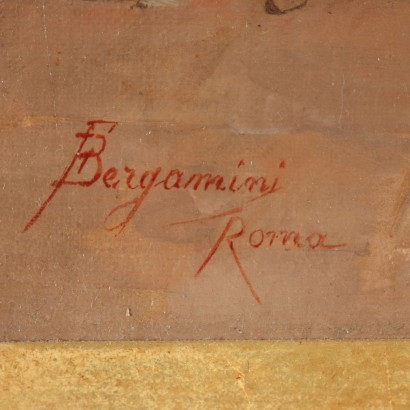 FBergamini
Roma